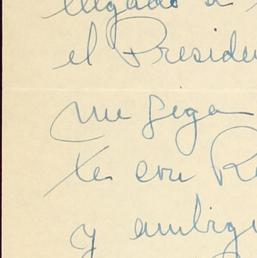 llegado a
el Preside
me llega
te con R
y ambigu